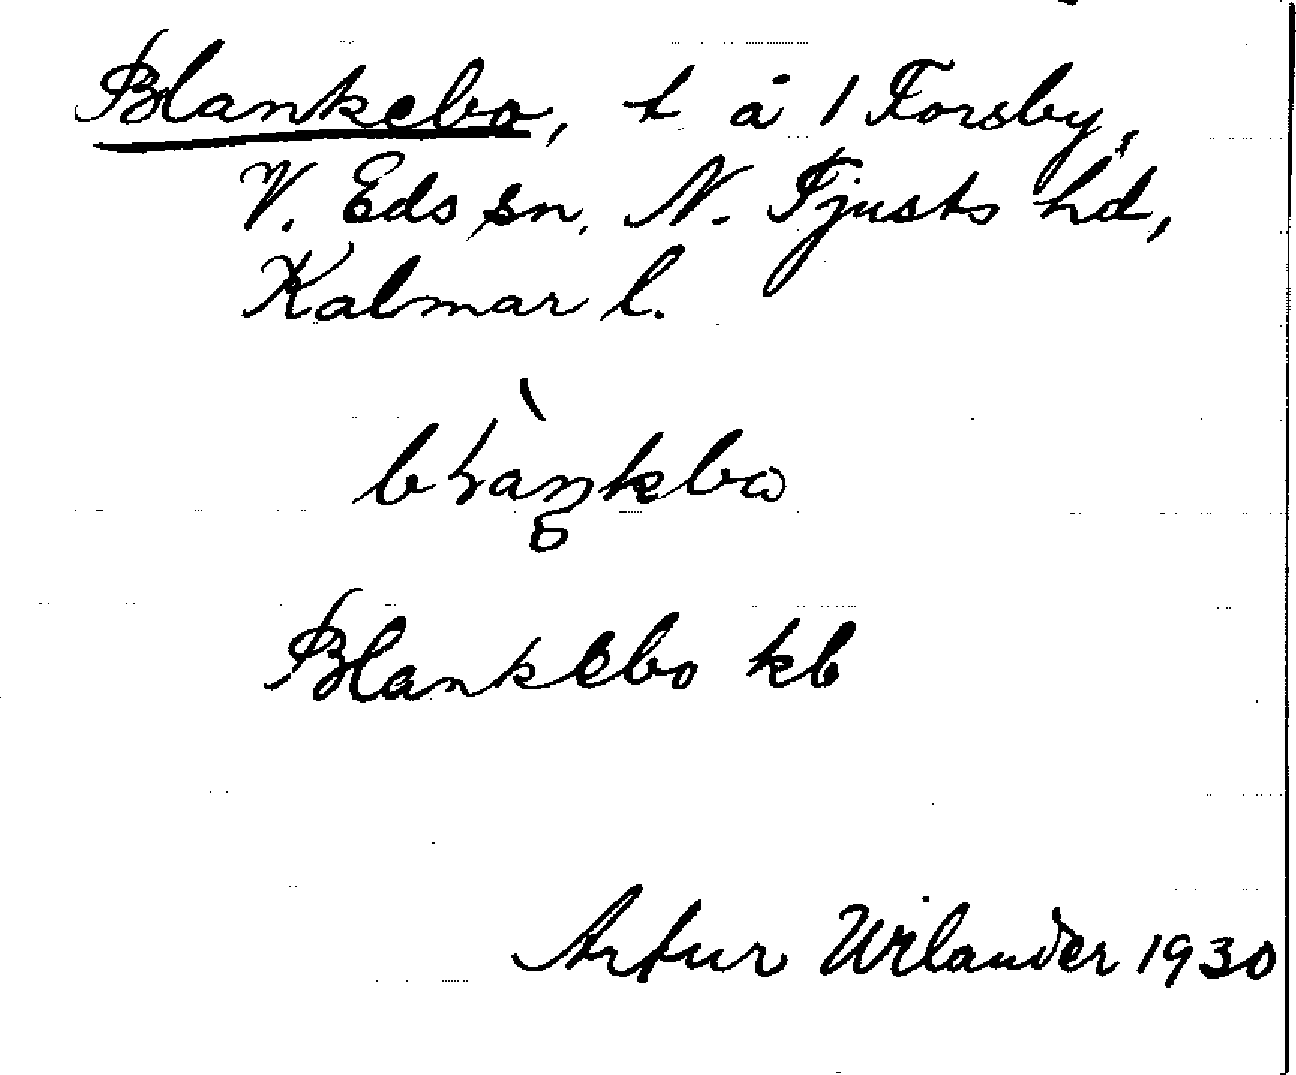 Blankebo, t å 1 Forsby,
V. Eds sn, N. Tjusts hd,
Kalmar l.
Blankebo kb
Artur Wilander 1930